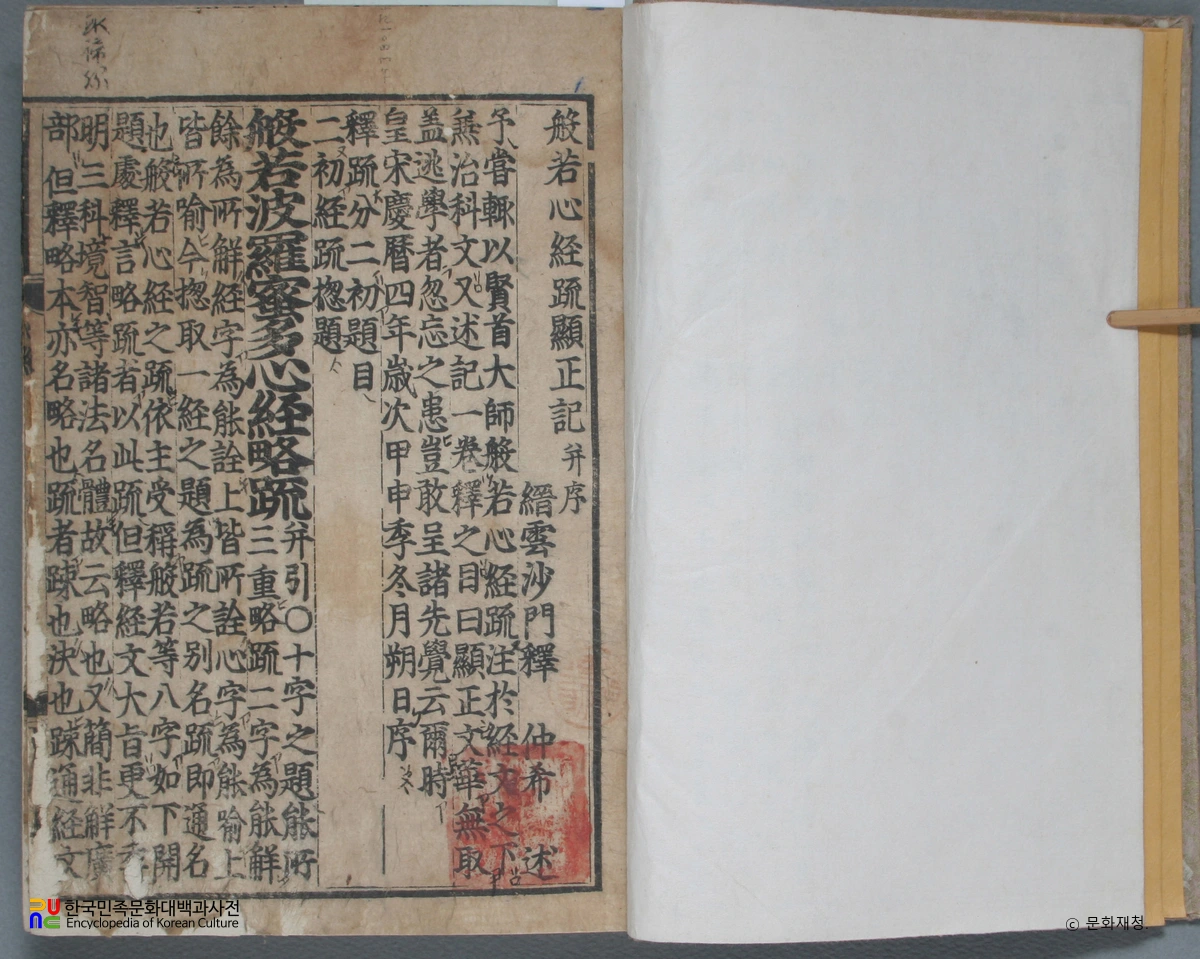 般若心経䟽顯正記 并序
縉雲沙門釋 仲希 述
予嘗輙以賢首大師般若心経䟽注於経文之下
無治科文又述記一卷釋之目曰顯正文華無取
盖逃學者忽忘之患豈敢呈諸先覺云爾時
皇宋慶曆四年歲次甲申季冬月朔日序
釋䟽分二初題目
二初経䟽揔題
般若波羅蜜多心経略䟽 并引〇十字之題能所
三重略䟽二字為能解
餘為所解経字為能詮上皆所詮心字為能喻上
皆所喻今揔取一経之題為䟽之别名䟽即通名
也般若心経之䟽依主受稱般若等八字如下開
題處釋言略䟽者以此䟽但釋経文大旨更不
明三科境智等諸法名體故云略也又簡非解廣
部但釋略本亦名略也䟽者踈也決也踈通経文
한국민족문화대백과사전
Encyclopedia of Korean Culture
© 문화재청